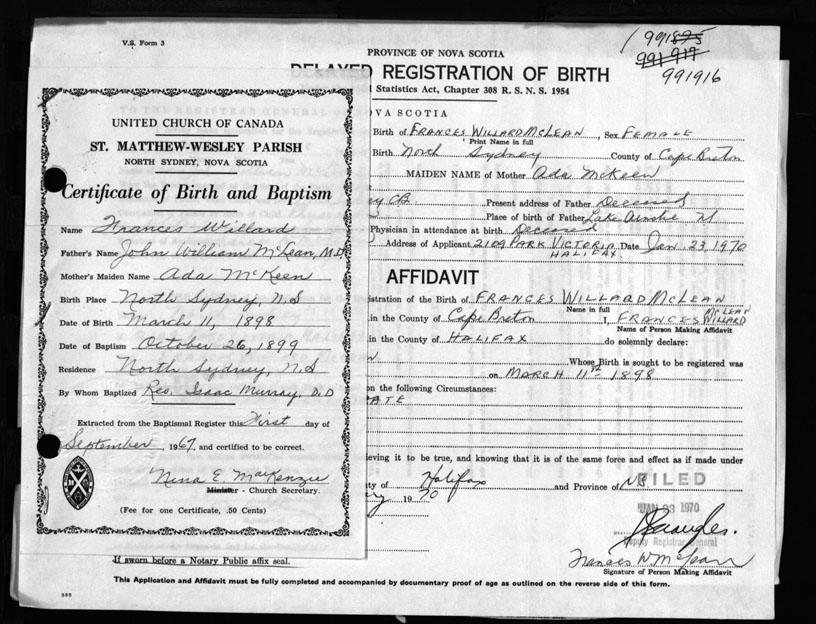 V.S. Form 3
PROVINCE OF NOVA SCOTIA
991895
991 917
991916
DELAYED REGISTRATION OF BIRTH
Statistics Act, Chapter 308 R. S. N. S. 1954
OVA SCOTIA
Birth of FRANCES WILLARD McLEAN, Sex FEMALE
Print Name in full
Birth North Sydney County of Cape Breton
MAIDEN NAME of Mother Ada McKeen
Present address of Father Deceased
Place of birth of Father Lake Ainslie
Physician in attendance at birth Deceased
Address of Applicant 2109 PARK VICTORIA Date Jan. 23, 1970
HALIFAX
AFFIDAVIT
istration of the Birth of FRANCES WILLARD McLEAN
Name in full
in the County of Cape Breton I, FRANCES WILLARD McLEAN
Name of Person Making Affidavit
in the County of HALIFAX do solemnly declare:
Whose Birth is sought to be registered was
on MARCH 11th 1898
on the following Circumstances:
ATE
ieving it to be true, and knowing that it is of the same force and effect as if made under
ty of Halifax and Province of NS
1970
FILED
JAN 23 1970
Deputy Registrar General
Frances W McLean
Signature of Person Making Affidavit
If sworn before a Notary Public affix seal.
This Application and Affidavit must be fully completed and accompanied by documentary proof of age as outlined on the reverse side of this form.
UNITED CHURCH OF CANADA
ST. MATTHEW-WESLEY PARISH
NORTH SYDNEY, NOVA SCOTIA
Certificate of Birth and Baptism
Name Frances Willard
Father's Name John William McLean, M.D
Mother's Maiden Name Ada McKeen
Birth Place North Sydney, N.S
Date of Birth March 11, 1898
Date of Baptism October 26, 1899
Residence North Sydney, N.S
By Whom Baptized Rev. Isaac Murray, D.D
Extracted from the Baptismal Register this First day of
September, 1967, and certified to be correct.
Nina E. MacKenzie
Minister - Church Secretary.
(Fee for one Certificate, .50 Cents)